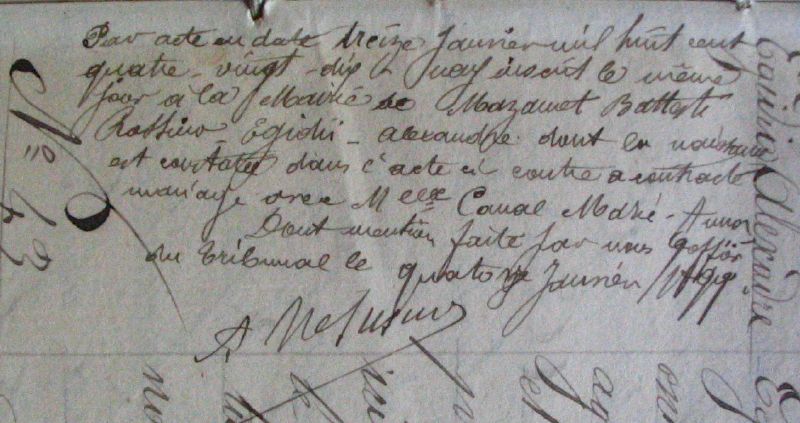 Par acte en date treize Janvier mil huit cent
quatre-vingt-dix-neuf inscrit le même
jour à la Mairie de Mazamet Battesti
Rossino Egidii-alexandre dont la naissance
est constatée dans l'acte ci contre a contracté
mariage avec Melle Canal Marie-Anna
Dont mention faite par nous Greffier
du tribunal le quatorze Janvier 1899.
No 43
Alexandre